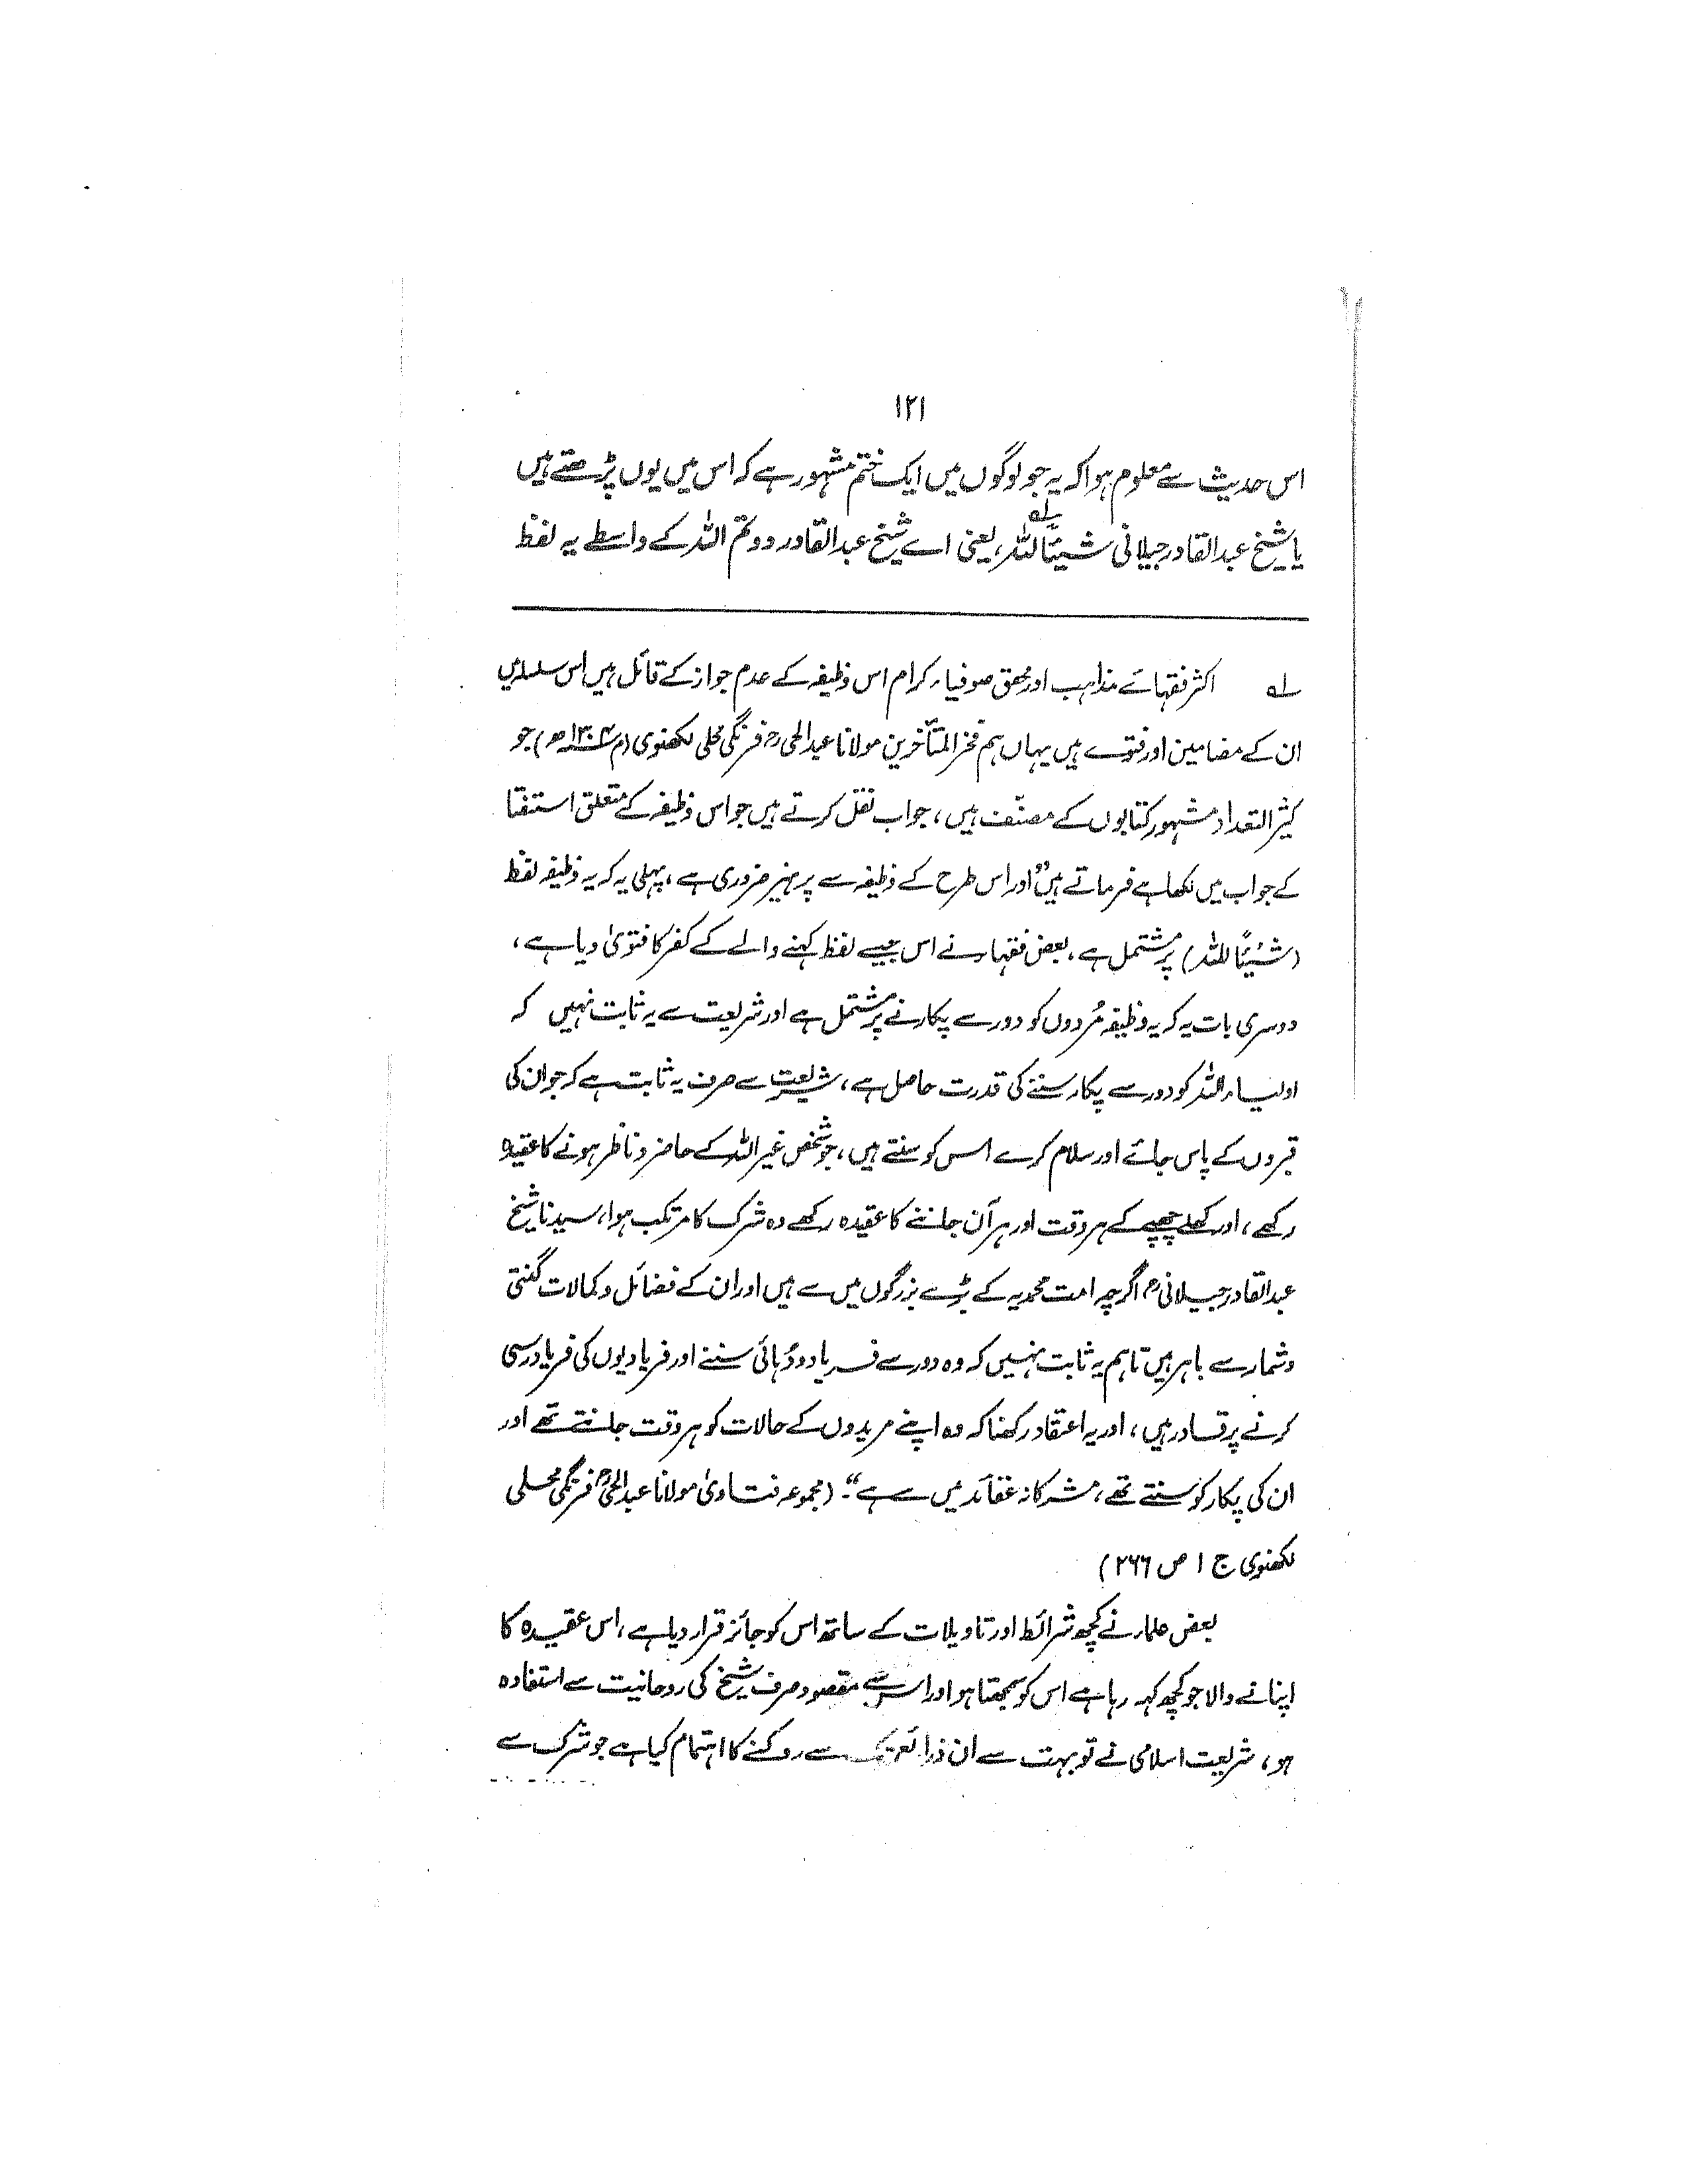 ۱۲۱
اس حدیث سے معلوم ہوا کہ یہ جو لوگوں میں ایک ختم مشہور ہے کہ اس میں یوں پڑھتے ہیں
یا شیخ عبدالقادر جیلانی شیئًا للہ لہ، یعنی اے شیخ عبدالقادر دو تم اللہ کے واسطے یہ لفظ
لہ اکثر فقہائے مذاہب اور محقق صوفیاء کرام اس وظیفہ کے عدم جواز کے قائل ہیں اس سلسلہ میں
ان کے مضامین اور فتوے ہیں یہاں ہم فخر المتأخرین مولانا عبدالحیؒ فرنگی محلی لکھنوی (م ۱۳۰۴ھ) جو
کثیر التعداد مشہور کتابوں کے مصنّف ہیں، جواب نقل کرتے ہیں جو اس وظیفہ کے متعلق استفتا
کے جواب میں لکھا ہے فرماتے ہیں "اور اس طرح کے وظیفہ سے پرہیز ضروری ہے، پہلی یہ کہ یہ وظیفہ لفظ
(شیئًا للہ) پر مشتمل ہے، بعض فقہاء نے اس جیسے لفظ کہنے والے کے کفر کا فتویٰ دیا ہے،
دوسری بات یہ کہ یہ وظیفہ مُردوں کو دور سے پکارنے پر مشتمل ہے اور شریعت سے یہ ثابت نہیں کہ
اولیاء اللہ کو دور سے پکار سننے کی قدرت حاصل ہے، شریعت سے صرف یہ ثابت ہے کہ جو ان کی
قبروں کے پاس جائے اور سلام کرے اس کو سنتے ہیں، جو شخص غیر اللہ کے حاضر و ناظر ہونے کا عقیدہ
رکھے، اور کھلے چھپے کے ہر وقت اور ہر آن جاننے کا عقیدہ رکھے وہ شرک کا مرتکب ہوا، سیدنا شیخ
عبدالقادر جیلانیؒ اگرچہ امت محمدیہ کے بڑے بزرگوں میں سے ہیں اور ان کے فضائل و کمالات گنتی
و شمار سے باہر ہیں تاہم یہ ثابت نہیں کہ وہ دور سے فریاد و دُہائی سننے اور فریادیوں کی فریاد رسی
کرنے پر قادر ہیں، اور یہ اعتقاد رکھنا کہ وہ اپنے مریدوں کے حالات کو ہر وقت جانتے تھے اور
ان کی پکار کو سنتے تھے، مشرکانہ عقائد میں سے ہے"۔ (مجموعہ فتاویٰ مولانا عبدالحیؒ فرنگی محلی
لکھنوی ج ۱ ص ۲۶۶)
بعض علماء نے کچھ شرائط اور تاویلات کے ساتھ اس کو جائز قرار دیا ہے، اس عقیدہ کا
اپنانے والا جو کچھ کہہ رہا ہے اس کو سمجھتا ہو اور اس سے مقصود صرف شیخ کی روحانیت سے استفادہ
ہو، شریعت اسلامی نے تو بہت سے ان ذرائع تک سے روکنے کا اہتمام کیا ہے جو شرک سے